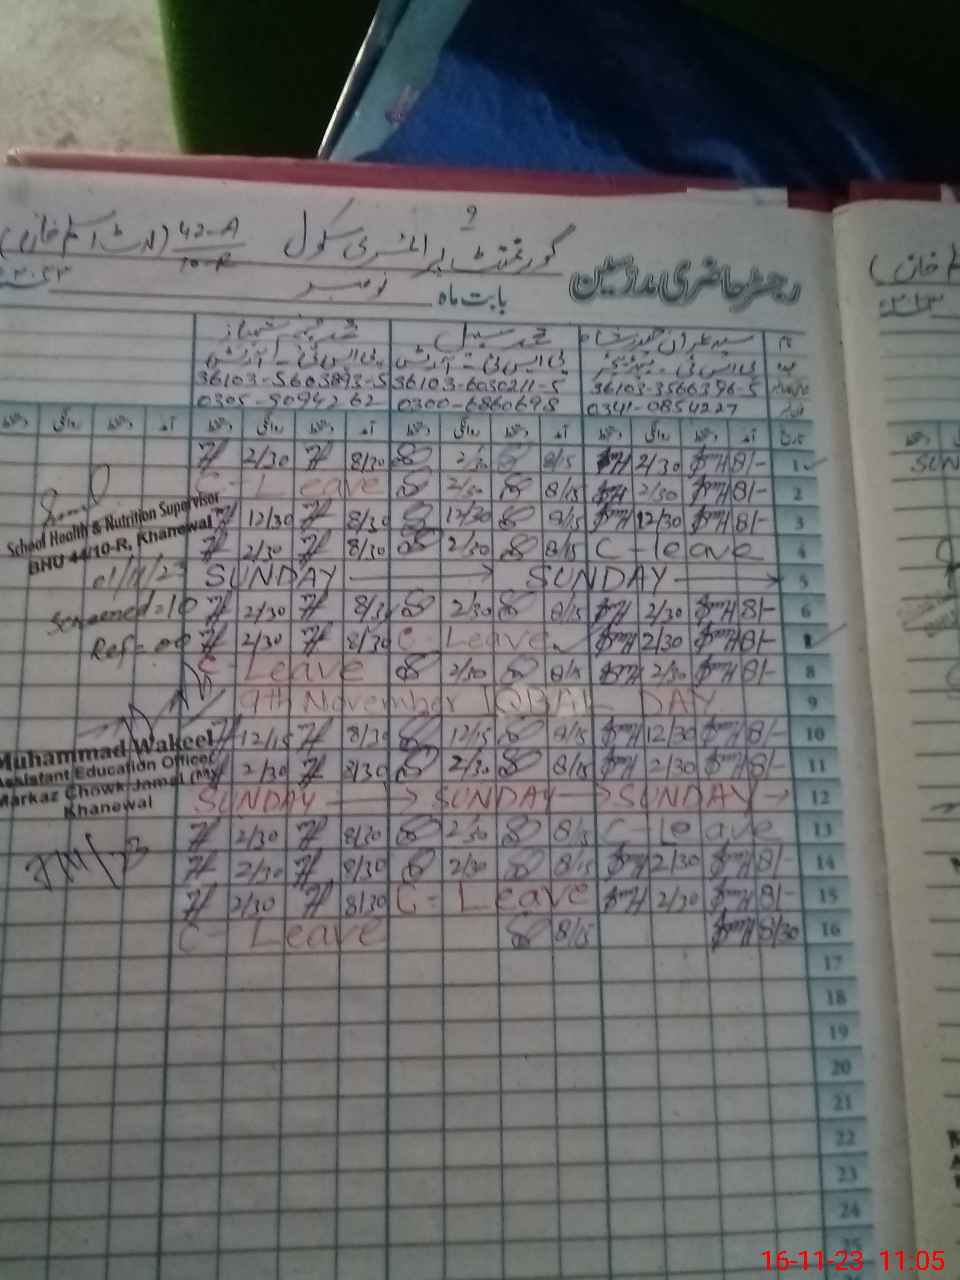 گورنمنٹ پرائمری سکول 42-A/10-R
رجسٹر حاضری مدرسین
بابت ماہ نومبر
نام
محمد سہیل
پی ایس ٹی - آرٹس
36103-5603893-5 36103-6030211-5 36103-3566396-5
0305-9094262 0300-6860698 0341-0854227
آمد دستخط روانگی دستخط آمد دستخط روانگی دستخط آمد دستخط روانگی دستخط تاریخ
2/30 8/30 2/30 8/15 2/30 8/- 1
C - Leave 2/30 8/15 2/30 8/- 2
12/30 8/30 12/30 8/15 12/30 8/- 3
2/30 8/30 2/30 8/15 C - leave 4
SUNDAY SUNDAY 5
2/30 8/30 2/30 8/15 2/30 8/- 6
2/30 8/30 C - Leave 2/30 8/-
C - Leave 2/30 8/15 2/30 8/- 8
9th November IQBAL DAY 9
12/15 8/30 12/15 8/15 12/30 8/- 10
2/30 8/30 2/30 8/15 2/30 8/- 11
SUNDAY SUNDAY SUNDAY 12
2/30 8/30 2/30 8/15 C - Leave 13
2/30 8/30 2/30 8/15 2/30 8/- 14
2/30 8/30 C - Leave 2/30 8/- 15
C - Leave 8/15 8/30 16
17
18
19
20
21
22
23
24
25
School Health & Nutrition Supervisor
BHU 44/10-R, Khanewal
01/11/23
Screened = 10
Ref = 00
Muhammad Wakeel
Assistant Education Officer
Markaz Chowk Jamal (M)
Khanewal
SUN
16-11-23 11:05